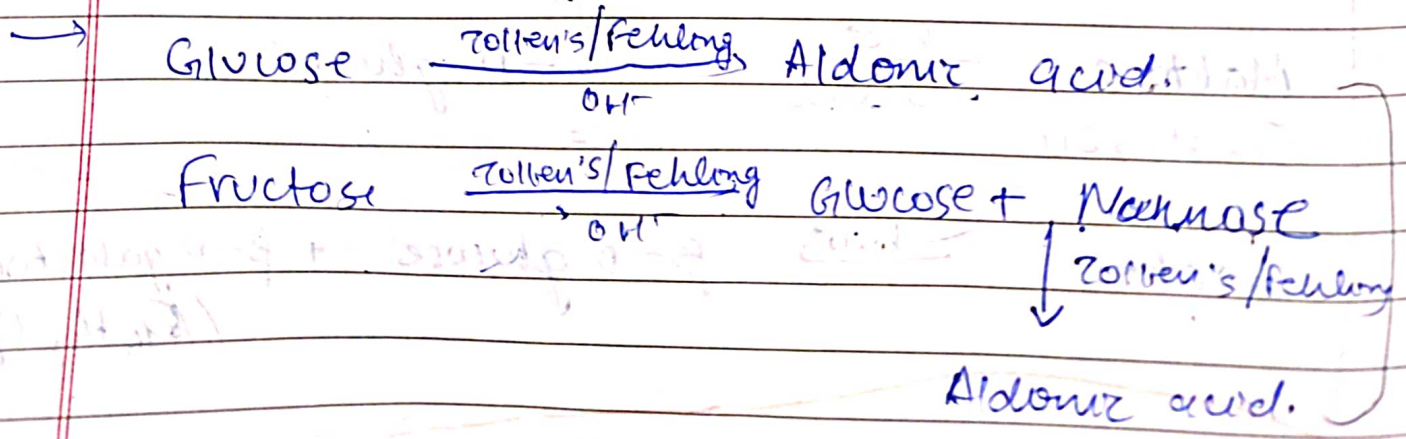 → Glucose Tollen's/Fehling OH⁻ → Aldonic acid.
Fructose Tollen's/Fehling OH⁻ → Glucose + Mannose
↓ Tollen's/Fehling
Aldonic acid.